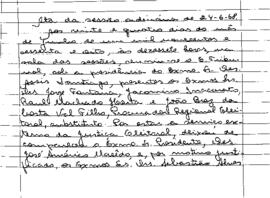 Ata da sessão ordinária de 24-6-68.
Aos vinte e quatro dias do mês
de junho de um mil novecentos e
sessenta e oito, às dezessete horas, na
sala das sessões, reuniu-se o E. Tribu
nal, sob a presidência do Exmo. Sr. Des.
presentes os Exmos. Srs.
Drs. Jorge Fontana, Jacomino Inacarato,
Raul Machado Horta e João Braz da
Costa Val Filho, Procurador Regional Elei-
toral, substituto. Por estar a serviço ex-
terno da Justiça Eleitoral, deixou de
comparecer o Exmo. Sr. Presidente, Des.
José Américo Macêdo e, por motivo justi-
ficado, os Exmos. Srs. Drs. Sebastião